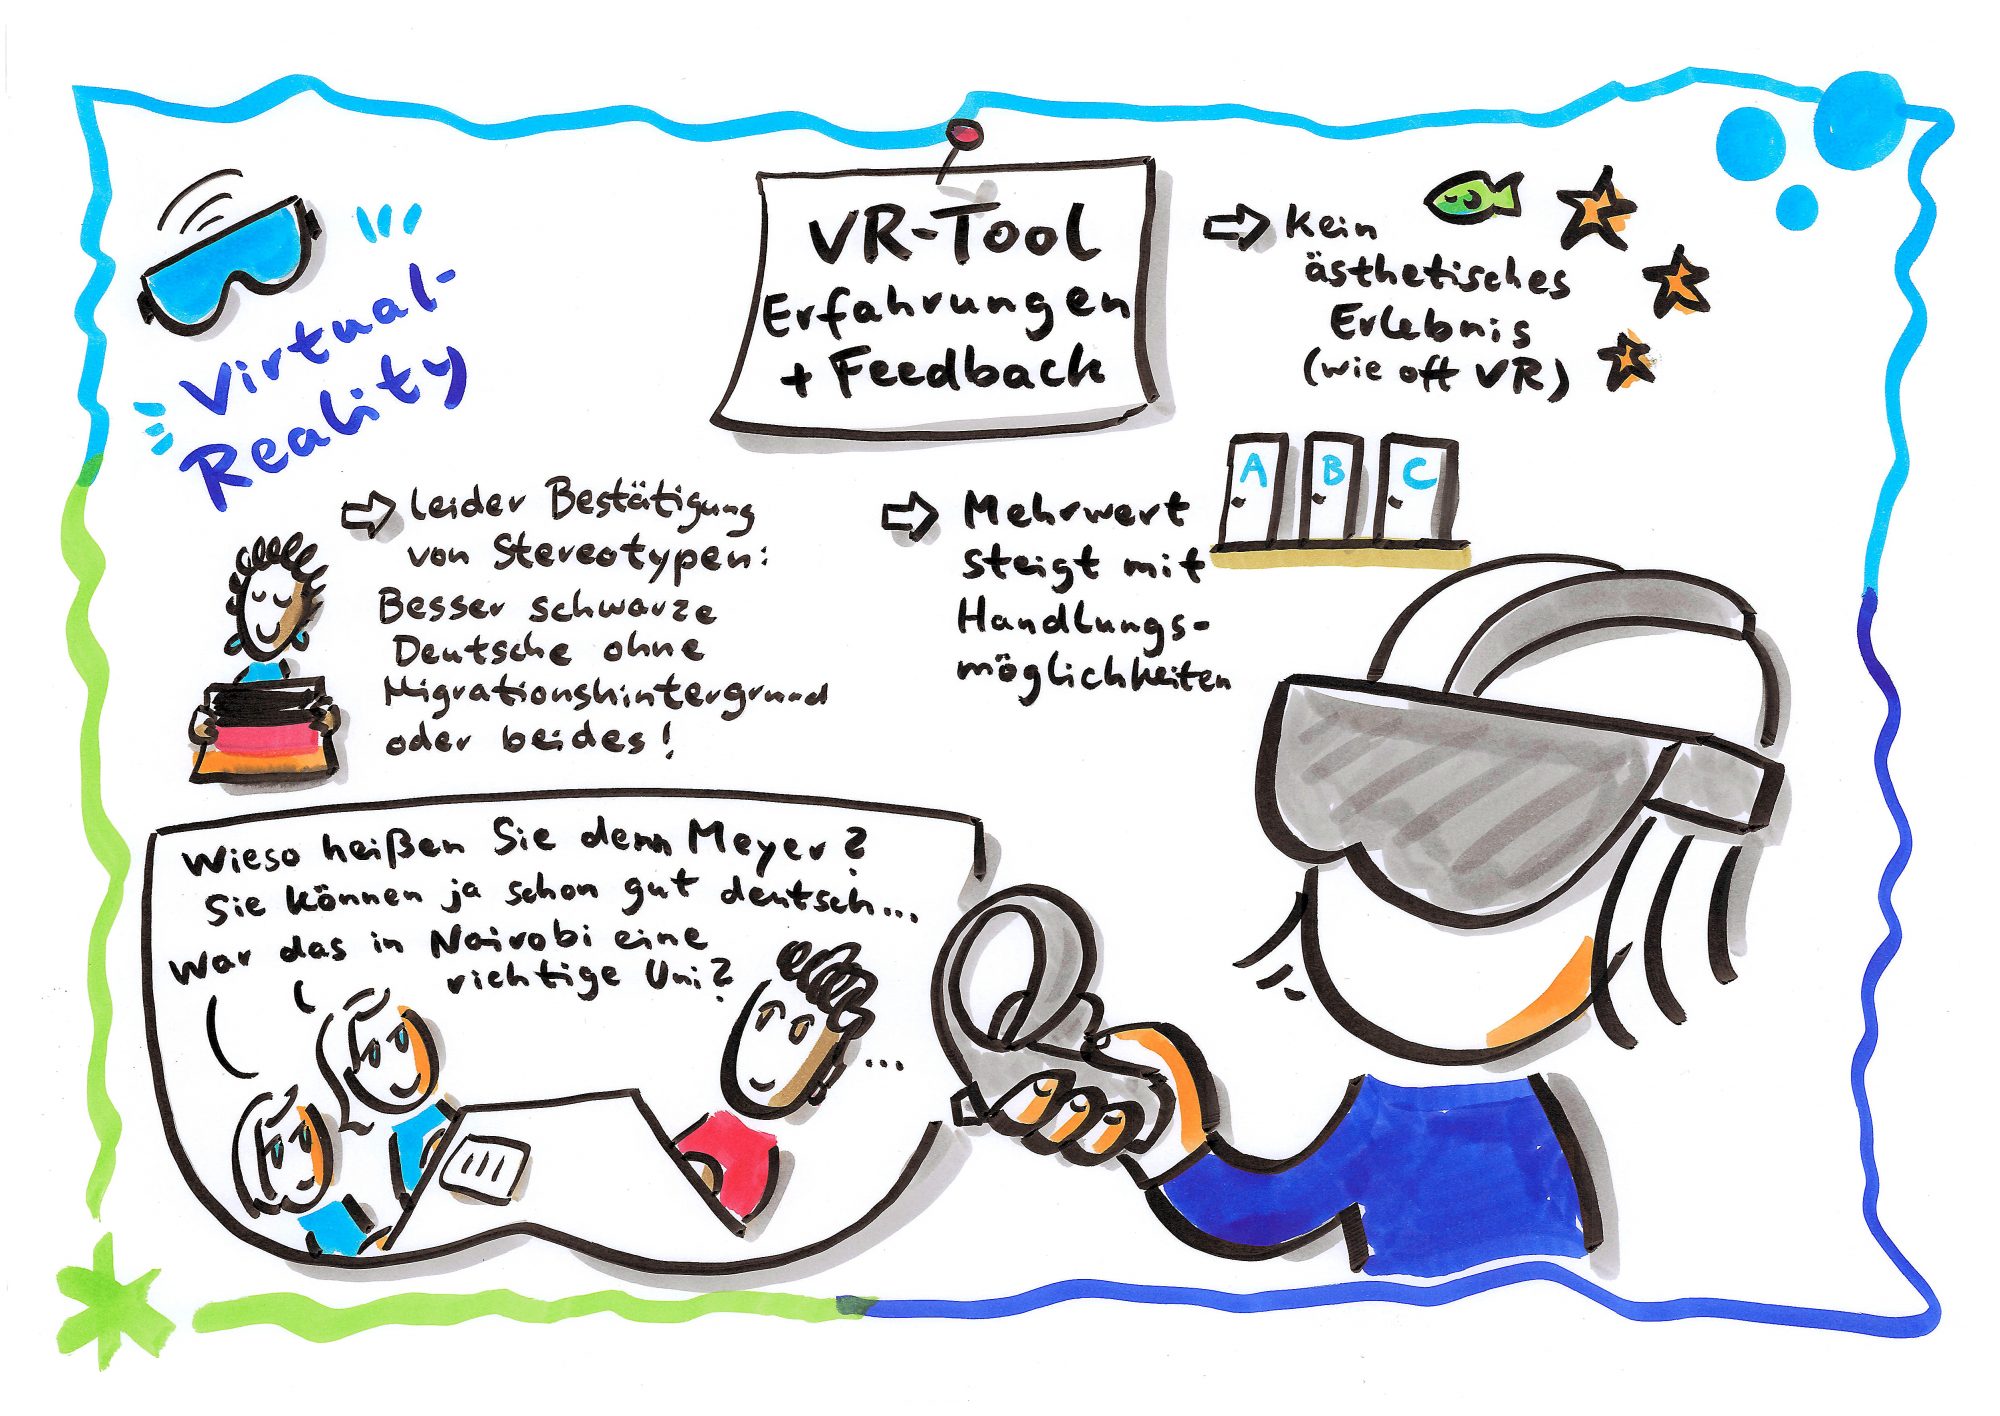 Virtual-
Reality
VR-Tool
Erfahrungen
+ Feedback
Kein
ästhetisches
Erlebnis
(wie oft VR)
A B C
Leider Bestätigung
von Stereotypen:
Besser schwarze
Deutsche ohne
Migrationshintergrund
oder beides!
Mehrwert
steigt mit
Handlungs-
möglichkeiten
Wieso heißen Sie denn Meyer?
Sie können ja schon gut deutsch...
War das in Nairobi eine
richtige Uni?
...